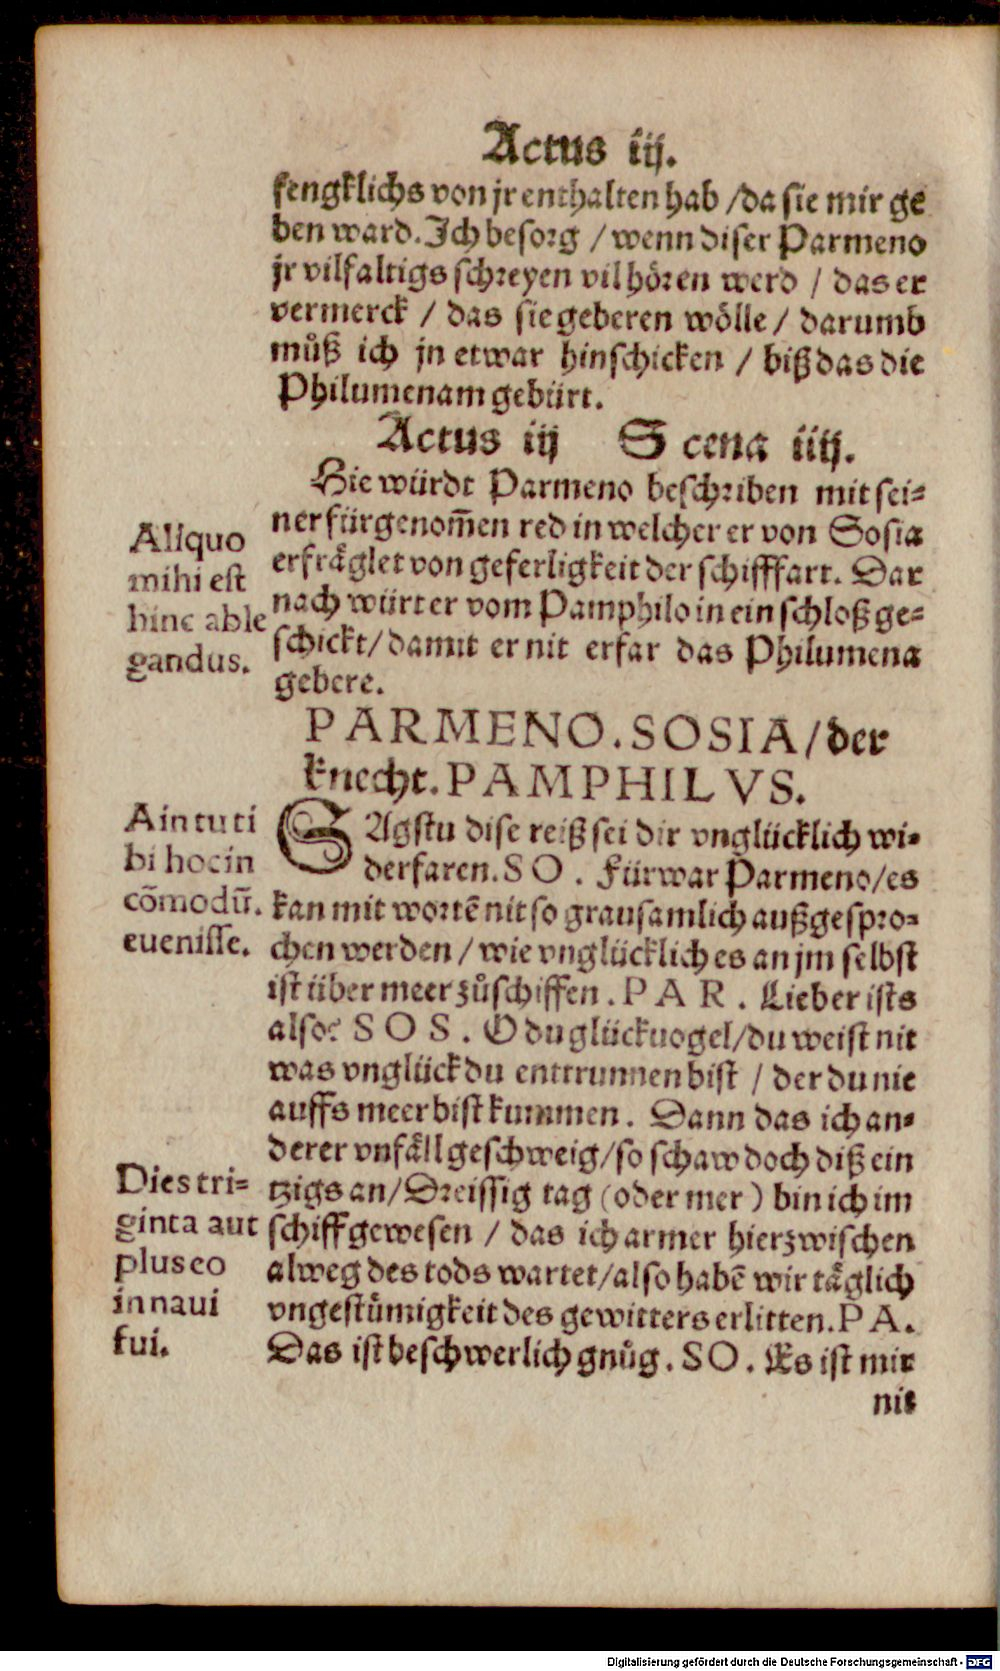 Actus iij.
fengklichs von jr enthalten hab /da sie mir ge
ben ward. Ich besorg / wenn diser Parmeno
jr vilfaltigs schreyen vil hören werd / das er
vermerck / das sie geberen wölle / darumb
můß ich jn etwar hinschicken / biß das die
Philumenam gebürt.
Actus iij Scena iiij.
Hie würdt Parmeno beschriben mit sei-
ner fürgenom̄en red in welcher er von Sosia
erfräglet von geferligkeit der schifffart. Dar
nach würt er vom Pamphilo in ein schloß ge-
schickt/ damit er nit erfar das Philumena
gebere.
Aliquo
mihi est
hinc able
gandus.
PARMENO. SOSIA /der
knecht. PAMPHILVS.
SAgstu dise reiß sei dir vnglücklich wi-
derfaren. SO. Fürwar Parmeno/es
kan mit wortē nit so grausamlich außgespro-
chen werden / wie vnglücklich es an jm selbst
ist über meer zůschiffen. PAR. Lieber ists
also? SOS. O du glückuogel/du weist nit
was vnglück du enttrunnen bist / der du nie
auffs meer bist kummen. Dann das ich an-
derer vnfäll geschweig/so schaw doch diß ein
tzigs an/Dreissig tag (oder mer) bin ich im
schiff gewesen / das ich armer hierzwischen
alweg des tods wartet/also habē wir täglich
vngestümigkeit des gewitters erlitten. PA.
Das ist beschwerlich gnůg. SO. Es ist mir
nit
Ain tu ti
bi hoc in
cōmodū.
euenisse.
Dies tri-
ginta aut
plus eo
in naui
fui.
Digitalisierung gefördert durch die Deutsche Forschungsgemeinschaft - DFG